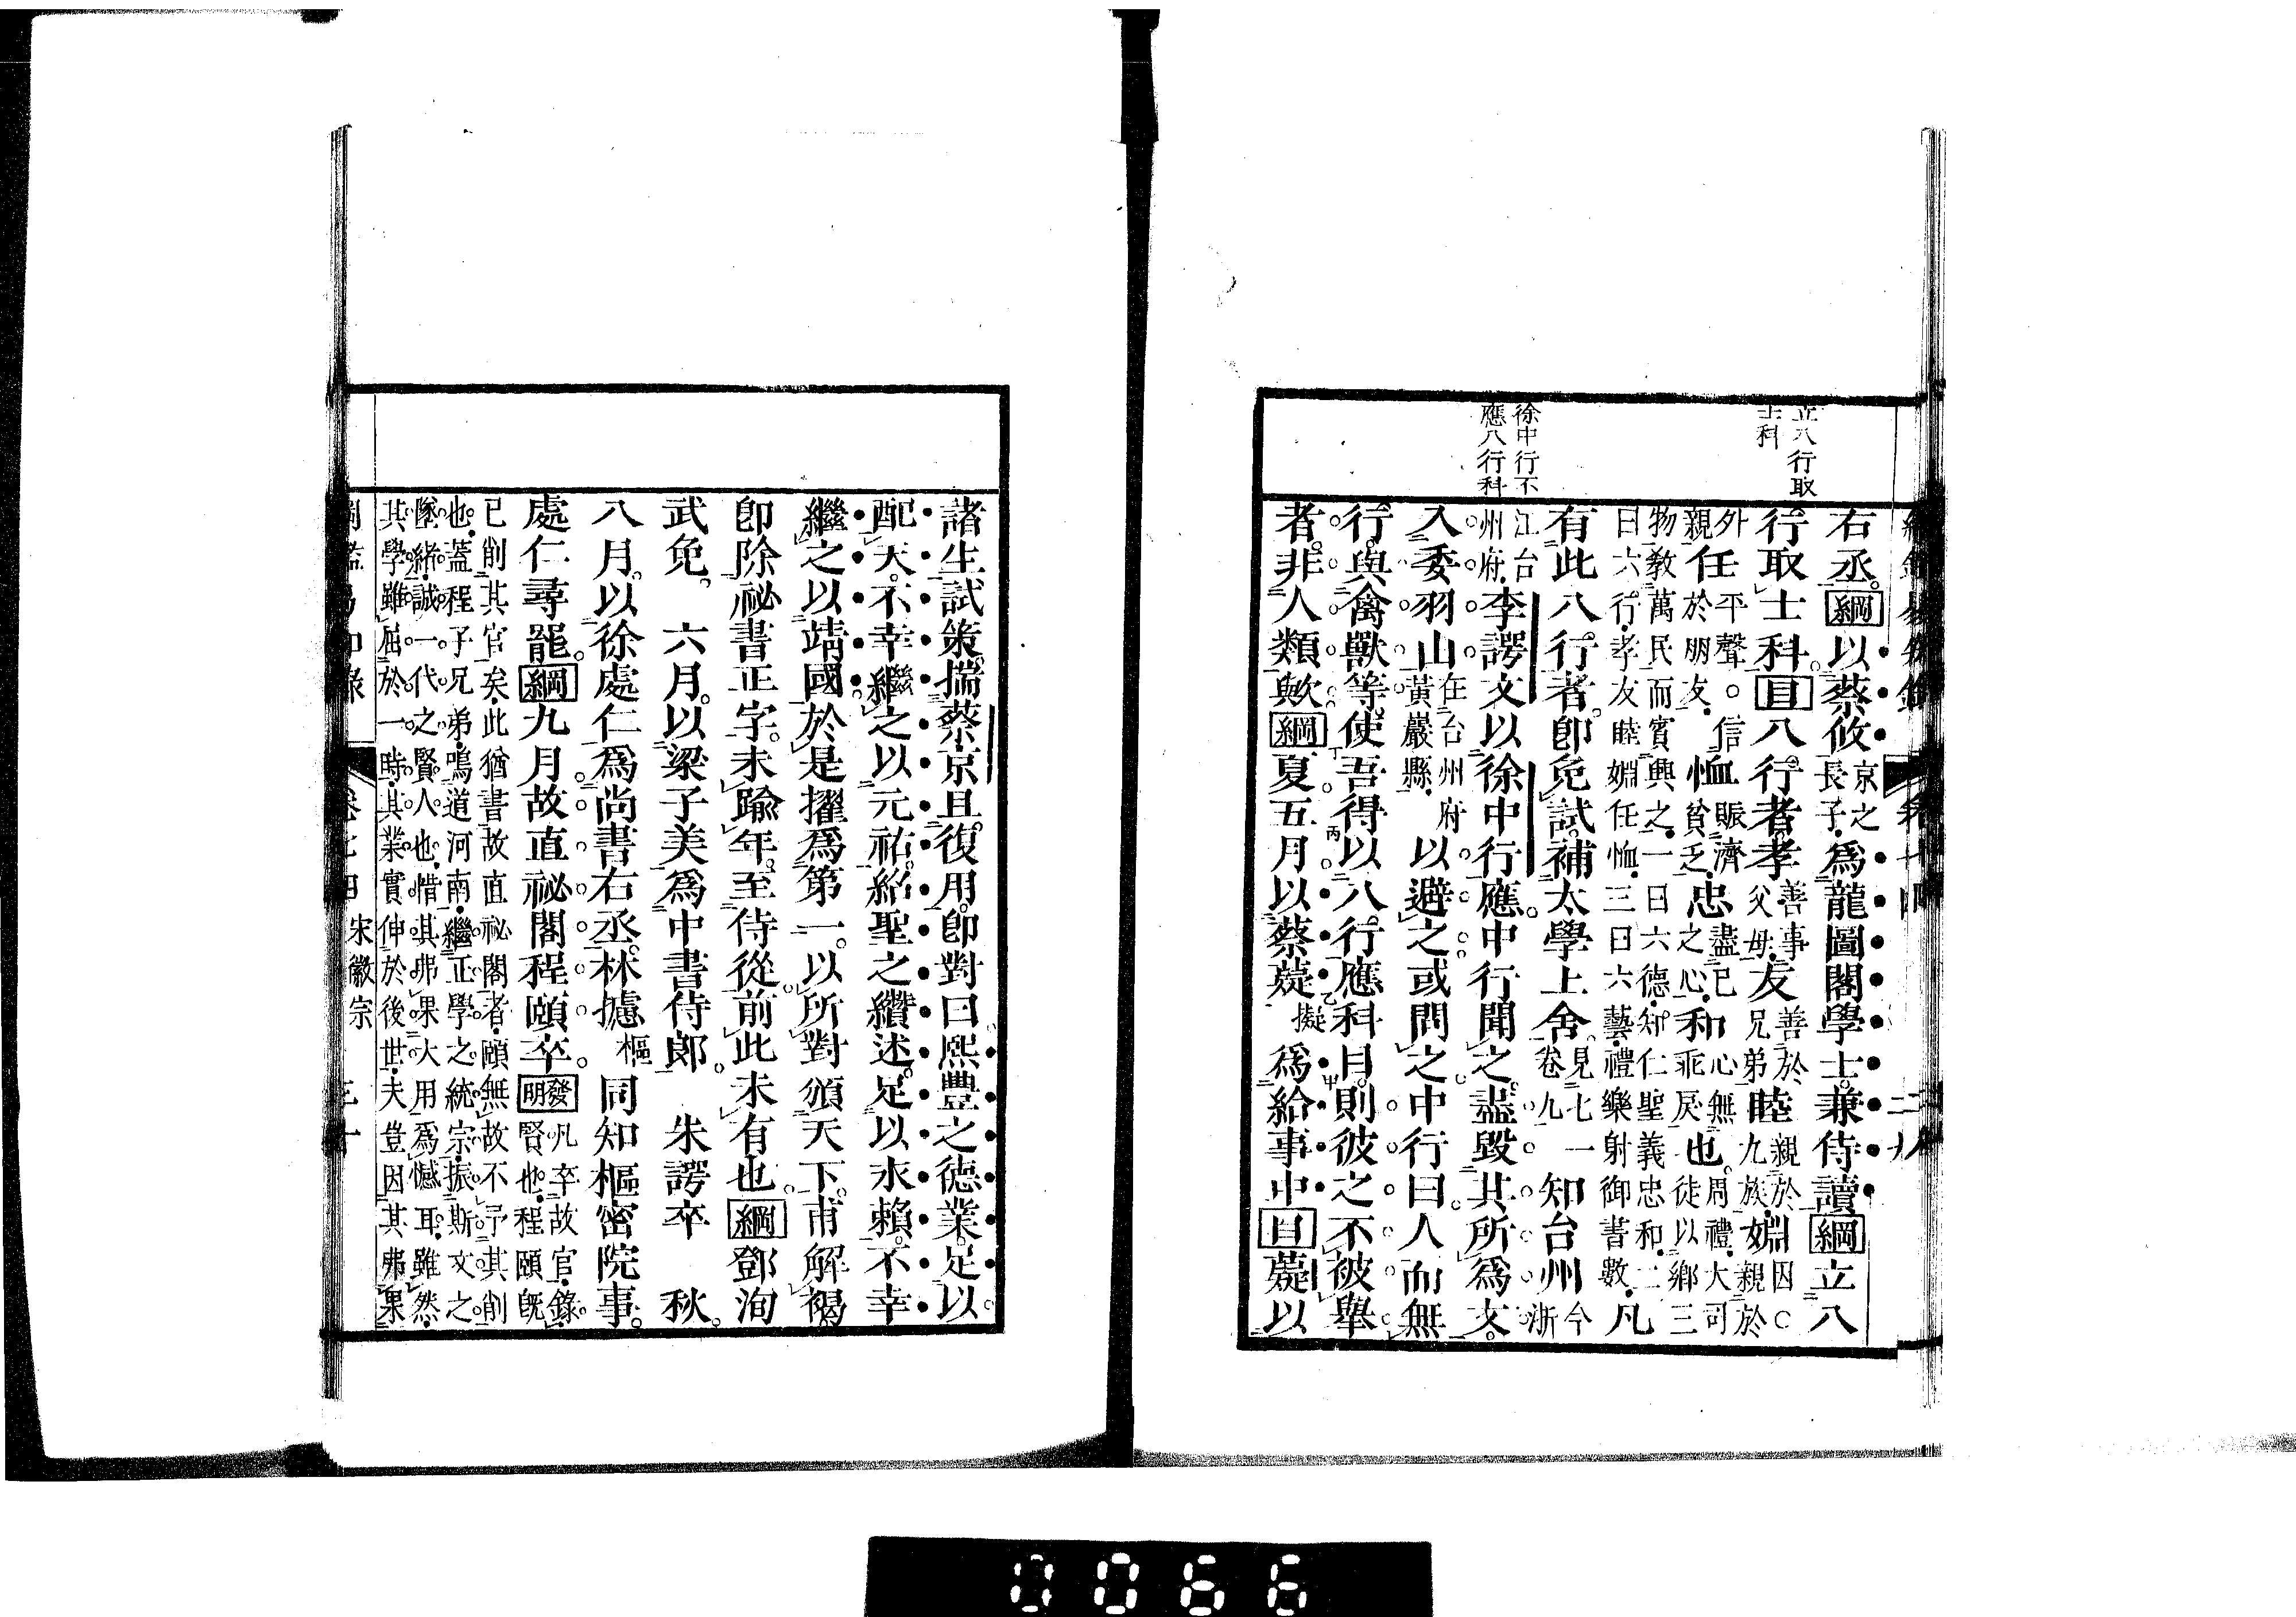 立八行取
士科
徐中行不
應八行科
右丞。綱以蔡攸京之長子。爲龍圖閣學士。兼侍讀綱立八
行取士科。目八行者。孝善事父母。友善於兄弟。睦親於九族。婣因○親於
外任平聲○信於朋友。恤賑濟貧乏。忠盡已之心。和心無乖戾也。周禮。大司徒以鄉三
物教萬民而賓興之。一曰六德。知仁聖義忠和。二曰六行。孝友睦婣任恤。三曰六藝。禮樂射御書數。凡
有此八行者。卽免試。補太學上舍。見七一卷九知台州今浙
江台州府。李諤文以徐中行應。中行聞之。盡毀其所爲文。
入委羽山在台州府黃巖縣。以避之或問之中行曰。人而無
行。與禽獸等。使吾得以八行應科目。則彼之不被舉
者。非人類歟。綱夏五月以蔡薿擬爲給事中目薿以
諸生試策。揣蔡京且復用。卽對曰熙豐之德業。足以
配天。不幸繼之以元祐。紹聖之纘述。足以永賴。不幸
繼之以靖國。於是擢爲第一。以所對頒天下。甫解褐
卽除祕書正字。未踰年。至侍從。前此未有也。綱鄧洵
武免。六月。以梁子美爲中書侍郎。朱諤卒 秋。
八月。以徐處仁爲尚書右丞。林攄樞同知樞密院事。
處仁尋罷。綱九月故直祕閣程頤卒。發明凡卒故官。錄賢也。程頤旣
已削其官矣。此猶書故直祕閣者。頤無故不予其削
也。蓋程子兄弟。鳴道河南。繼正學之統宗。振斯文之
墜緖。誠一代之賢人也。惜其弗果大用爲憾耳。雖然。
其學雖屈於一時。其業實伸於後世。夫豈因其弗果
宋徽宗
0066